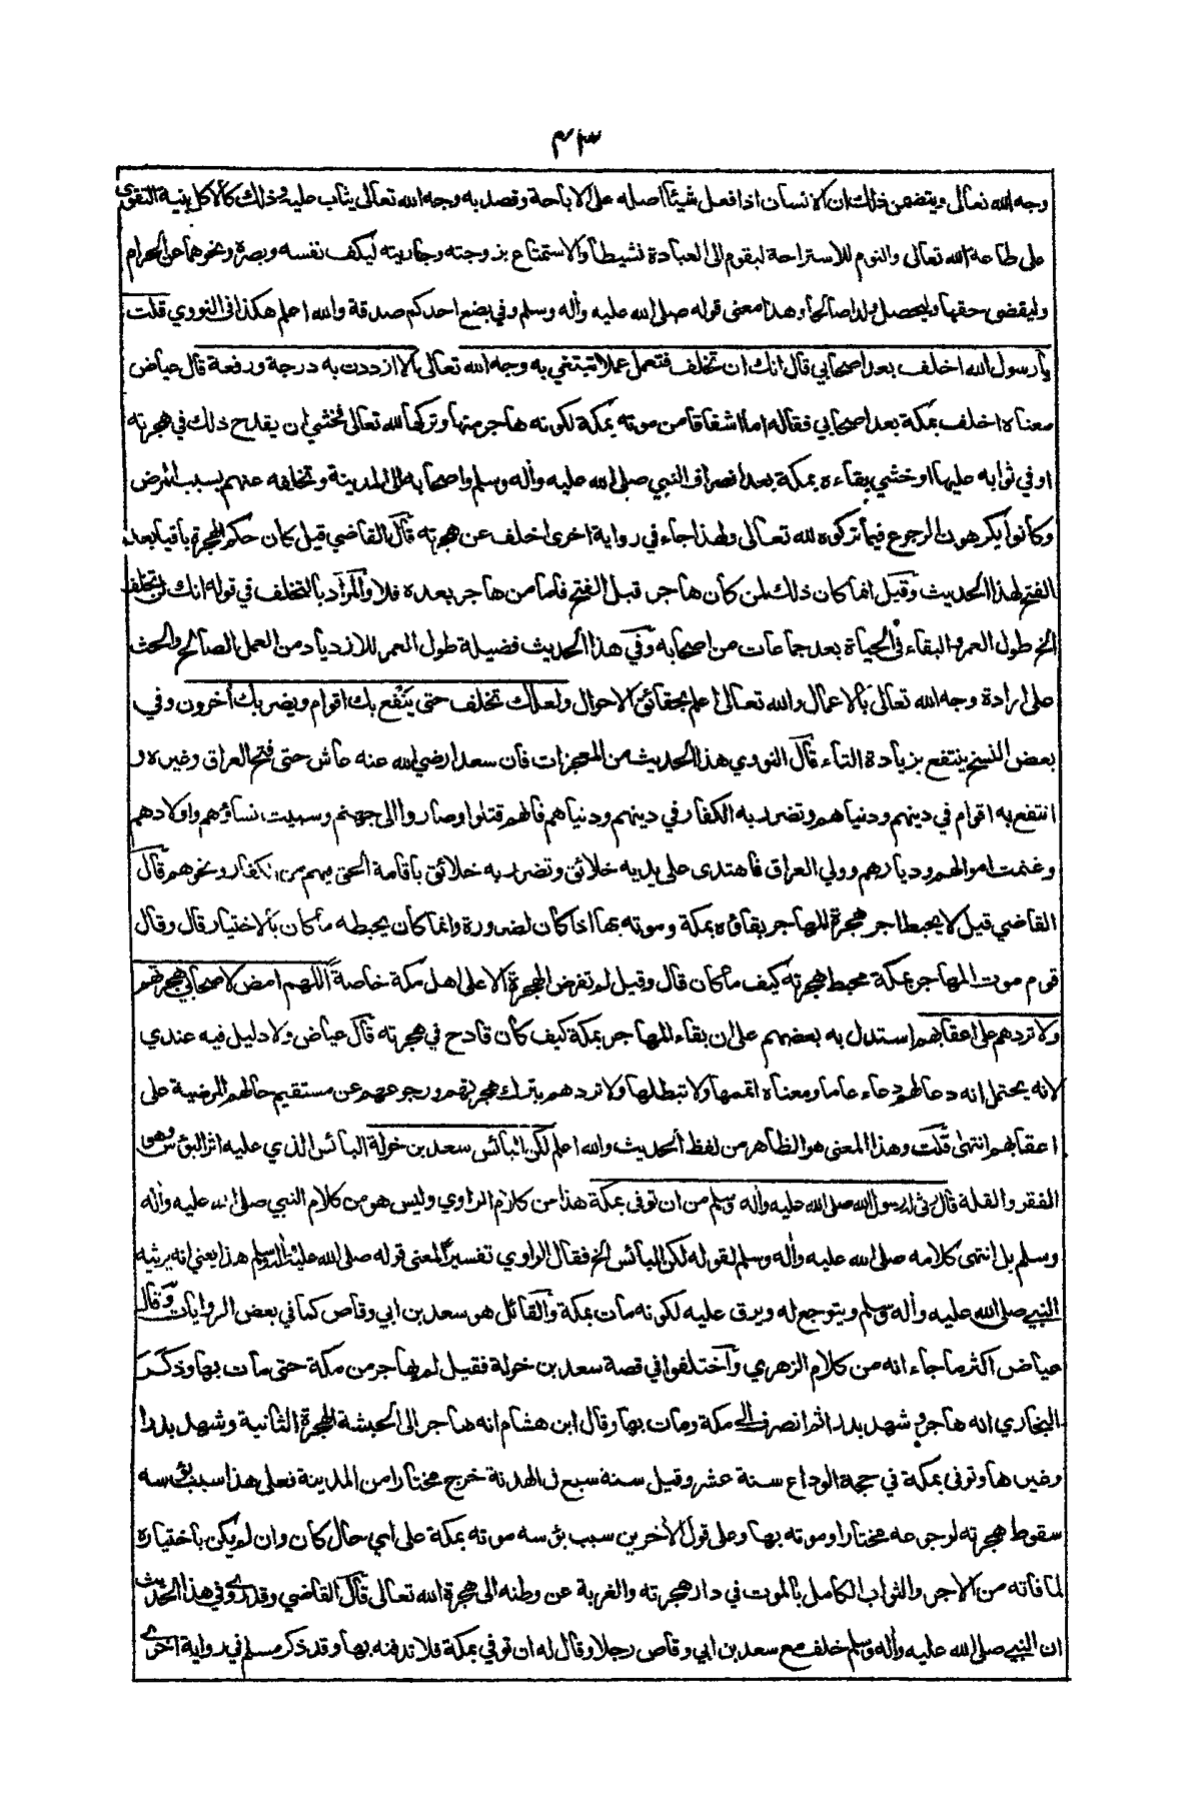 ٤٣
وجه الله تعالى ويتضمن ذلك ان الانسان اذا فعل شيئا اصله على الاباحة وقصد به وجه الله تعالى يثاب عليه وذلك كالاكل بنية التقوى
على طاعة الله تعالى والنوم للاستراحة ليقوم الى العبادة نشيطا والاستمتاع بزوجته وجاريته ليكف نفسه وبصره ونحوهما عن الحرام
وليقضى حقها وليحصل ولدا صالحا وهذا معنى قوله صلى الله عليه وأله وسلم وفي بضع احدكم صدقة والله اعلم هكذا في النووي قلت
يا رسول الله اخلف بعد اصحابي قال انك ان تخلف فتعمل عملا تبتغي به وجه الله تعالى الا ازددت به درجة ورفعة قال عياض
معناه اخلف بمكة بعد اصحابي فقاله اما اشفاقا من موته بمكة لكونه هاجر منها وتركها لله تعالى فخشي ان يقدح ذلك في هجرته
او في ثوابه عليها او خشي بقاءه بمكة بعد انصراف النبي صلى الله عليه وأله وسلم واصحابه الى المدينة وتخلفه عنهم بسبب المرض
وكانوا يكرهون الرجوع فيما تركوه لله تعالى ولهذا جاء في رواية اخرى اخلف عن هجرته قال القاضي قيل كان حكم الهجرة باقيا بعد
الفتح لهذا الحديث وقيل انما كان ذلك لمن كان هاجر قبل الفتح فاما من هاجر بعده فلا والمراد بالتخلف في قوله انك لن تخلف
الخ طول العمر والبقاء في الحياة بعد جماعات من اصحابه وفي هذا الحديث فضيلة طول العمر للازدياد من العمل الصالح والحث
على ارادة وجه الله تعالى بالاعمال والله تعالى اعلم بحقائق الاحوال ولعلك تخلف حتى ينفع بك اقوام ويضر بك أخرون وفي
بعض النسخ ينتفع بزيادة التاء قال النووي هذا الحديث من المعجزات فان سعدا رضي الله عنه عاش حتى فتح العراق وغيره و
انتفع به اقوام في دينهم ودنياهم وتضرر به الكفار في دينهم ودنياهم فانهم قتلوا وصاروا الى جهنم وسبيت نساؤهم واولادهم
وغنمت اموالهم وديارهم وولي العراق فاهتدى على يديه خلائق وتضرر به خلائق باقامة الحق فيهم من الكفار ونحوهم قال
القاضي قيل لا يحبط اجر هجرة المهاجر بقاؤه بمكة وموته بها اذا كان لضرورة وانما كان يحبطه ما كان بالاختيار قال وقال
قوم موت المهاجر بمكة محبط هجرته كيف ما كان قال وقيل لم تفرض الهجرة الا على اهل مكة خاصة اللهم امض لاصحابي هجرتهم
ولا تردهم على اعقابهم استدل به بعضهم على ان بقاء المهاجر بمكة كيف كان قادح في هجرته قال عياض ولا دليل فيه عندي
لانه يحتمل انه دعا لهم دعاء عاما ومعناه اتممها ولا تبطلها ولا تردهم بترك هجرتهم ورجوعهم عن مستقيم حالهم المرضية على
اعقابهم انتهى قلت وهذا المعنى هو الظاهر من لفظ الحديث والله اعلم لكن البائس سعد بن خولة البائس الذي عليه اثر البؤس وهو
الفقر والقلة قال رثى له رسول الله صلى الله عليه وأله وسلم من ان توفى بمكة هذا من كلام الراوي وليس هو من كلام النبي صلى الله عليه وأله
وسلم بل انتهى كلامه صلى الله عليه وأله وسلم لقوله لكن البائس الخ فقال الراوي تفسيرا لمعنى قوله صلى الله عليه وأله وسلم هذا يعني انه يرثيه
النبي صلى الله عليه وأله وسلم ويتوجع له ويرق عليه لكونه مات بمكة والقائل هو سعد بن ابي وقاص كما في بعض الروايات وقال
عياض اكثر ما جاء انه من كلام الزهري واختلفوا في قصة سعد بن خولة فقيل لم يهاجر من مكة حتى مات بها وذكر
البخاري انه هاجر وشهد بدرا ثم انصرف الى مكة ومات بها وقال ابن هشام انه هاجر الى الحبشة الهجرة الثانية وشهد بدرا
وغيرها وتوفى بمكة في حجة الوداع سنة عشر وقيل سنة سبع في الهدنة خرج مختارا من المدينة فعلى هذا سبب بؤسه
سقوط هجرته لرجوعه مختارا وموته بها وعلى قول الأخرين سبب بؤسه موته بمكة على اي حال كان وان لم يكن باختياره
لما فاته من الاجر والثواب الكامل بالموت في دار هجرته والغربة عن وطنه الى هجرة الله تعالى قال القاضي وقد روي في هذا الحديث
ان النبي صلى الله عليه وأله وسلم خلف مع سعد بن ابي وقاص رجلا وقال له ان توفي بمكة فلا تدفنه بها وقد ذكر مسلم في رواية اخرى